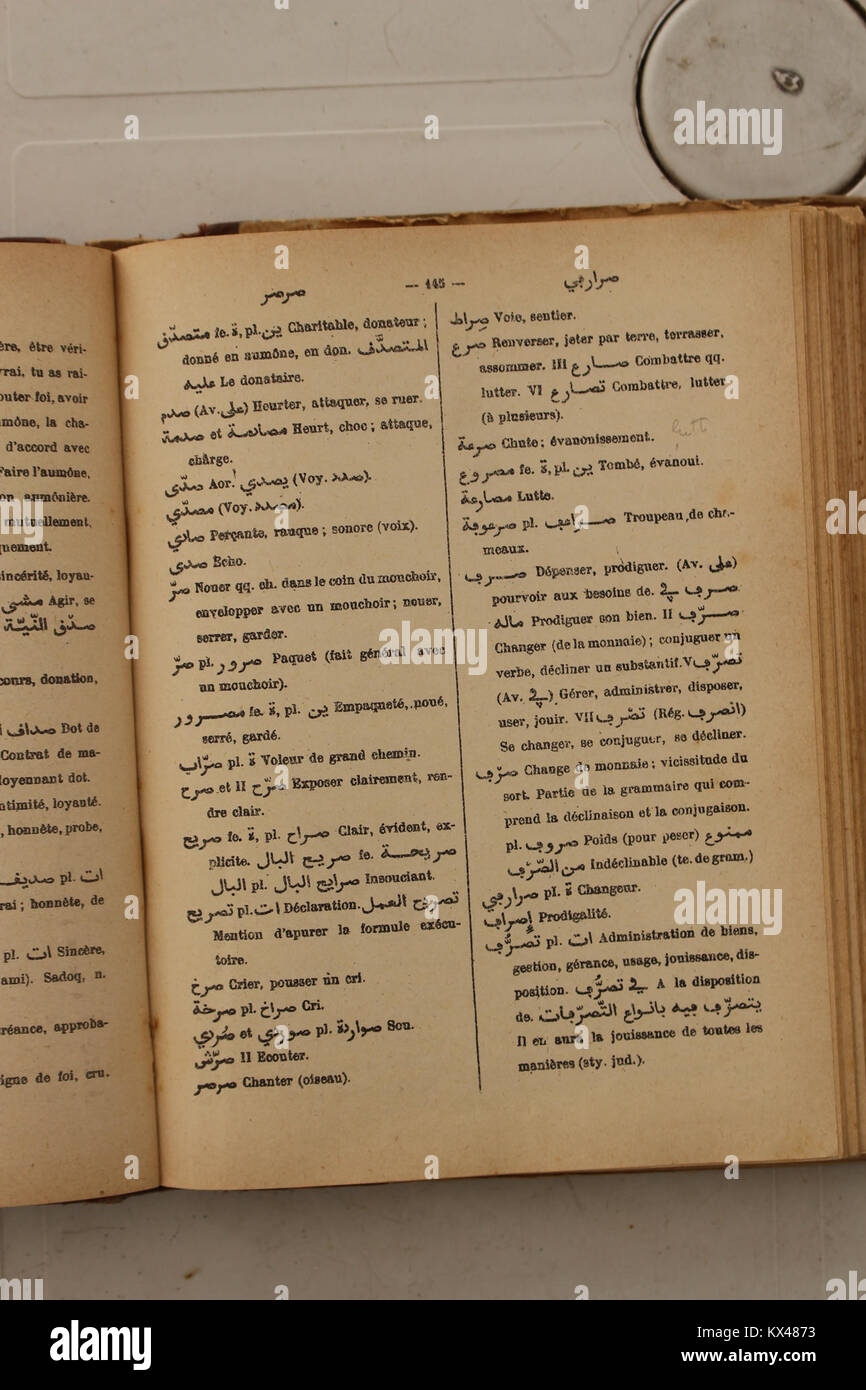 صرصر — 145 — صرارفي
ère, être véri-
vrai, tu as rai-
outer foi, avoir
umône, la cha-
d'accord avec
Faire l'aumône,
aumônière.
mutuellement,
quement.
sincérité, loyau-
مشى Agir, se
صدق النيّة
cours, donation,
صداق Dot de
Contrat de ma-
Moyennant dot.
ntimité, loyauté.
, honnête, probe,
صديق pl. ات
rai ; honnête, de
pl. ات Sincère,
ami). Sadoq, n.
réance, approba-
igne de foi, cru.
متصدّق fe. ة, pl. ين Charitable, donateur ;
donné en aumône, en don. المتصدَّق
عليه Le donataire.
صدم (Av. على) Heurter, attaquer, se ruer.
صدمة et مصادمة Heurt, choc ; attaque,
charge.
صدّى Aor. يصدي (Voy. صدد).
مصدّي (Voy. مصدد).
صادي Perçante, rauque ; sonore (voix).
صدى Echo.
صرّ Nouer qq. ch. dans le coin du mouchoir,
envelopper avec un mouchoir ; nouer,
serrer, garder.
صرّ pl. صرور Paquet (fait général avec
un mouchoir).
مصرور fe. ة, pl. ين Empaqueté, noué,
serré, gardé.
صرّاب pl. ة Voleur de grand chemin.
صرح et II صرّح Exposer clairement, ren-
dre clair.
صريح fe. ة, pl. صراح Clair, évident, ex-
plicite. صريح البال fe. صريحة
البال pl. صرايح البال Insouciant.
تصريح pl. ات Déclaration. تصريح العمل
Mention d'apurer la formule exécu-
toire.
صرخ Crier, pousser un cri.
صرخة pl. صراخ Cri.
صُردي et صوردي pl. صواردة Sou.
صرّش II Ecouter.
صرصر Chanter (oiseau).
صراط Voie, sentier.
صرع Renverser, jeter par terre, terrasser,
assommer. III صارع Combattre qq.
lutter. VI تصارع Combattre, lutter
(à plusieurs).
صرعة Chute ; évanouissement.
مصروع fe. ة, pl. ين Tombé, évanoui.
مصارعة Lutte.
صرعوفة pl. صراعف Troupeau de cha-
meaux.
صرف Dépenser, prodiguer. (Av. على)
pourvoir aux besoins de. صرف في
ماله Prodiguer son bien. II صرّف
Changer (de la monnaie) ; conjuguer un
verbe, décliner un substantif. V تصرّف
(Av. في) Gérer, administrer, disposer,
user, jouir. VII تصّرف (Rég. انصرف)
Se changer, se conjuguer, se décliner.
صرف Change de monnaie ; vicissitude du
sort. Partie de la grammaire qui com-
prend la déclinaison et la conjugaison.
pl. صروف Poids (pour peser) ممنوع
من الصّرف Indéclinable (te. de gram.)
صرارفي pl. ة Changeur.
إصراف Prodigalité.
تصرُّف pl. ات Administration de biens,
gestion, gérance, usage, jouissance, dis-
position. في تصرُّف A la disposition
de. يتصرّف فيه بانواع التّصرّفات
Il en aura la jouissance de toutes les
manières (sty. jud.).
alamy
Image ID: KX4873
www.alamy.com